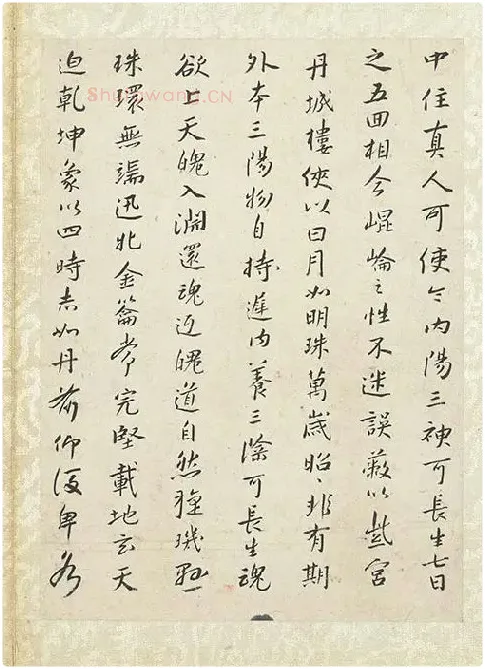 中住真人可使令内陽三神可長生七日
之五回相合崐崘之性不迷誤蔽以紫宮
丹城樓俠以日月如明珠萬歲昭〻非有期
外本三陽物自持内養三陰可長生魂
欲上天魄入淵還魂返魄道自然璇璣懸
珠環無端迅牝金籥常完堅載地玄天
迫乾坤象以四時赤如丹前仰後卑各
Shufawang.CN